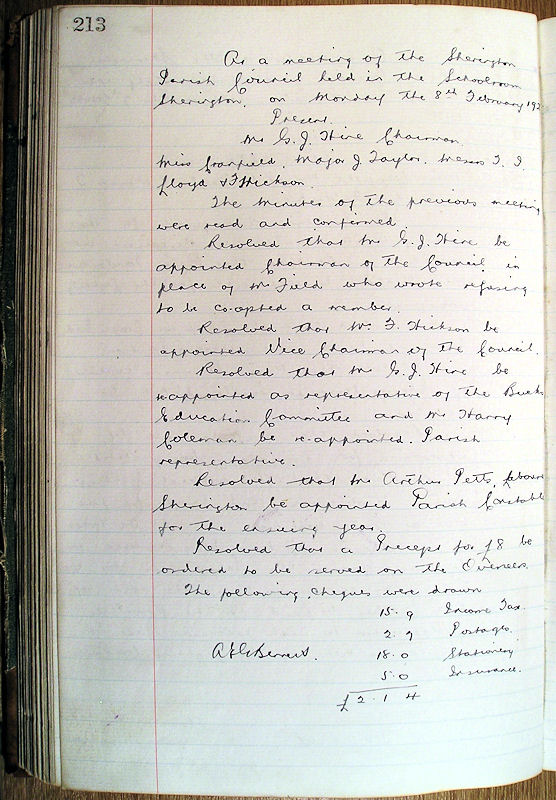 213
At a meeting of the Sherington
Parish Council held in the Schoolroom
Sherington, on Monday the 8th February 192
Present.
Mr G. J. Hine Chairman.
Miss Cranfield. Major J Taylor. Messrs T. J.
Lloyd & F Hickson.
The minutes of the previous meeting
were read and confirmed.
Resolved that Mr G. J. Hine be
appointed Chairman of the Council in
place of Mr Field who wrote refusing
to be co-opted a member.
Resolved that Mr F. Hickson be
appointed Vice Chairman of the Council.
Resolved that Mr G. J. Hine be
re-appointed as representative of the Bucks
Education Committee and Mr Harry
Coleman be re-appointed. Parish
representative.
Resolved that Mr Arthur Petts, labourer
Sherington be appointed Parish Constable
for the ensuing year.
Resolved that a Precept for £8 be
ordered to be served on the Overseers
The following cheques were drawn
15. 9 Income Tax
2. 7 Postages.
18. 0 Stationery
5. 0 Insurance.
£2. 1 4